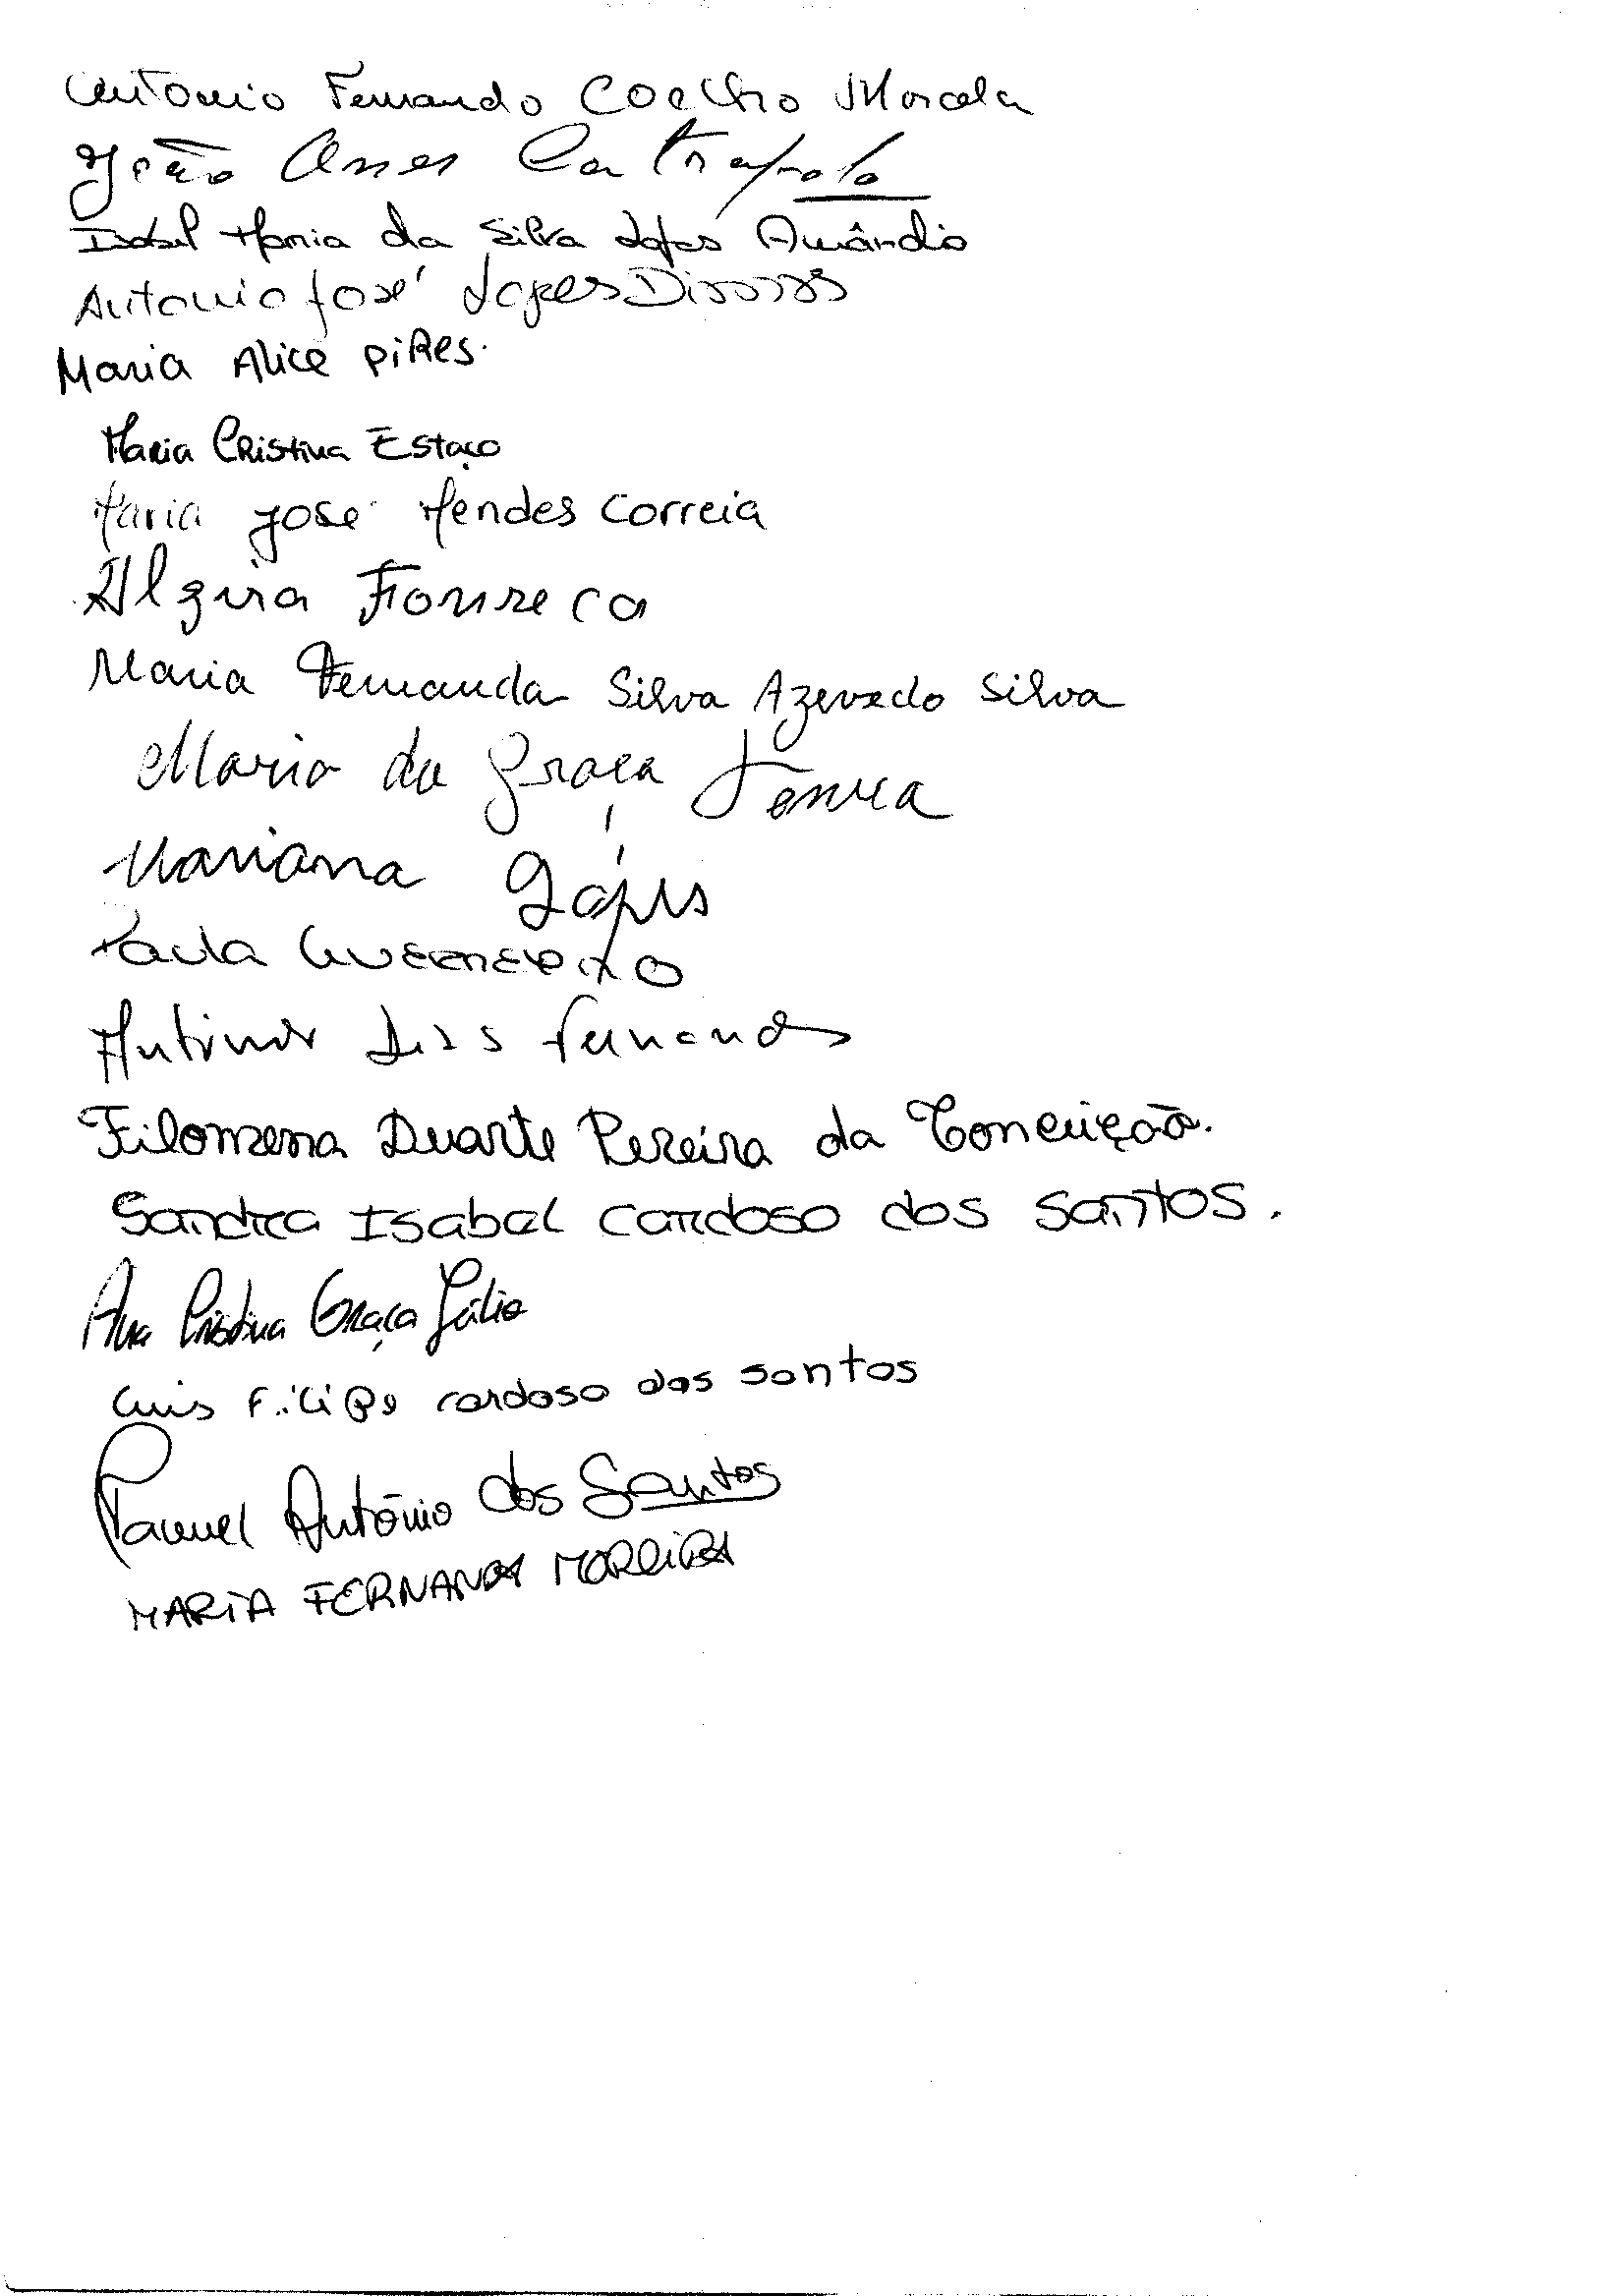 António Fernando Coelho Morcela
João Anes Contraponto
Isabel Maria da Silva Lopes Amândio
Antonio José Lopes
Maria Alice PiRes.
Maria Cristina Estaço
Maria José Mendes Correia
Alzira Fonseca
Maria Fernanda Silva Azevedo Silva
Maria da Graça
Mariana
Paula Guerreiro
António Dias Fernandes
Filomena Duarte Pereira da Conceição.
Sandra Isabel Cardoso dos Santos.
Ana Cristina Graça Júlio
Luis Filipe cardoso dos santos
Manuel António dos Santos
MARIA FERNANDA MOREIRA